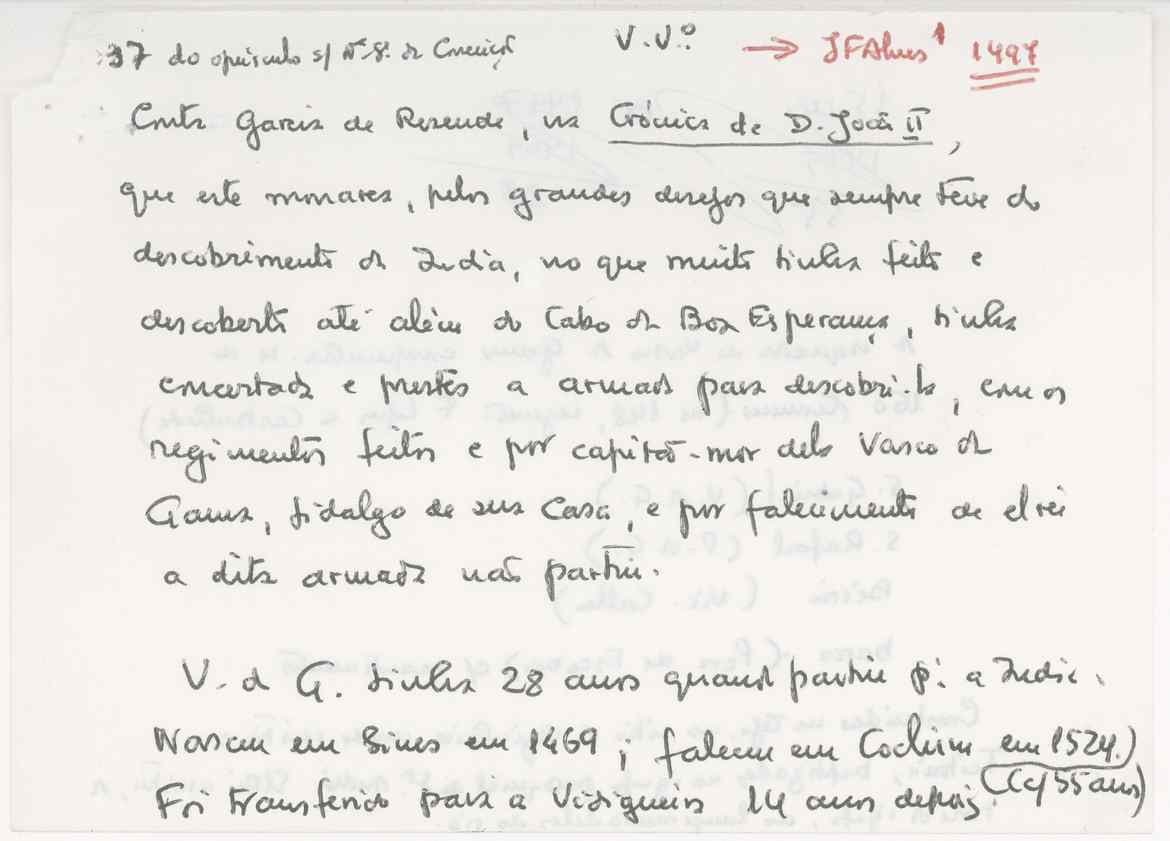 37 do opúsculo s/ Nª. Sª. da Conceição V.Vº. → JFAlves 1 1497
Conta Garcia de Resende, na Crónica de D. João II,
que este monarca, pelos grandes desejos que sempre teve do
descobrimento da India, no que muito tinha feito e
descoberto até além do Cabo da Boa Esperança, tinha
concertada e prestes a armada para descobri-la, com os
regimentos feitos e por capitão-mor dela Vasco da
Gama, fidalgo de sua Casa, e por falecimento de el rei
a dita armada não partiu.
V. da G. tinha 28 anos quando partiu p: a India.
Nasceu em Sines em 1469; faleceu em Cochim em 1524.)
(C/ 55 anos)
Foi transferido para a Vidigueira 14 anos depois.